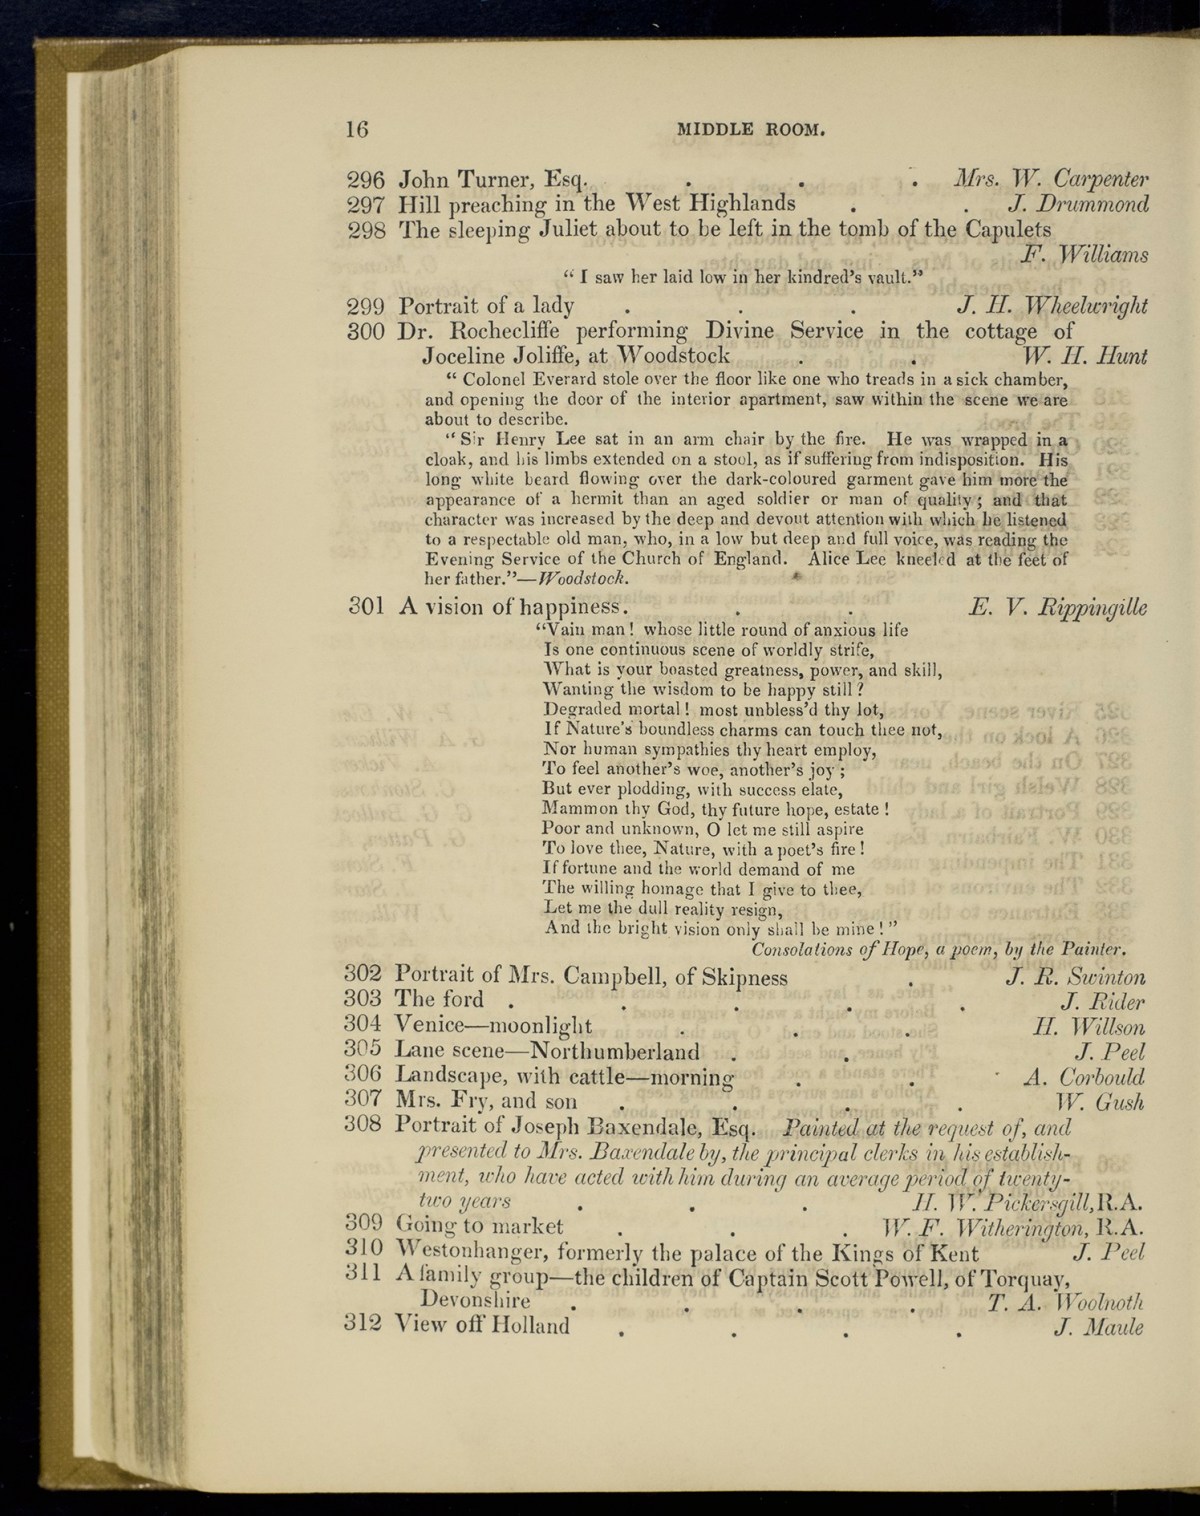 16 MIDDLE ROOM.
296 John Turner, Esq. . . . Mrs. W. Carpenter
297 Hill preaching in the West Highlands . . J. Drummond
298 The sleeping Juliet about to be left in the tomb of the Capulets
F. Williams
“ I saw her laid low in her kindred’s vault.”
299 Portrait of a lady . . . J. H. Wheelwright
300 Dr. Rochecliffe performing Divine Service in the cottage of
Joceline Joliffe, at Woodstock . . W. H. Hunt
“ Colonel Everard stole over the floor like one who treads in a sick chamber,
and opening the door of the interior apartment, saw within the scene we are
about to describe.
“ Sir Henry Lee sat in an arm chair by the fire. He was wrapped in a
cloak, and his limbs extended on a stool, as if suffering from indisposition. His
long white beard flowing over the dark-coloured garment gave him more the
appearance of a hermit than an aged soldier or man of quality ; and that
character was increased by the deep and devout attention with which he listened
to a respectable old man, who, in a low but deep and full voice, was reading the
Evening Service of the Church of England. Alice Lee kneeled at the feet of
her father.”—Woodstock.
301 A vision of happiness. . . E. V. Rippingille
“Vain man ! whose little round of anxious life
Is one continuous scene of worldly strife,
What is your boasted greatness, power, and skill,
Wanting the wisdom to be happy still ?
Degraded mortal ! most unbless’d thy lot,
If Nature’s boundless charms can touch thee not,
Nor human sympathies thy heart employ,
To feel another’s woe, another’s joy ;
But ever plodding, with success elate,
Mammon thy God, thy future hope, estate !
Poor and unknown, O let me still aspire
To love thee, Nature, with a poet’s fire !
If fortune and the world demand of me
The willing homage that I give to thee,
Let me the dull reality resign,
And the bright vision only shall be mine ! ”
Consolations of Hope, a poem, by the Painter.
302 Portrait of Mrs. Campbell, of Skipness . J. R. Swinton
303 The ford . . . . . J. Rider
304 Venice—moonlight . . . H. Willson
305 Lane scene—Northumberland . . J. Peel
306 Landscape, with cattle—morning . . . A. Corbould
307 Mrs. Fry, and son . . . . W. Gush
308 Portrait of Joseph Baxendale, Esq. Painted at the request of, and
presented to Mrs. Baxendale by, the principal clerks in his establish-
ment, who have acted with him during an average period of twenty-
two years . . . H. W. Pickersgill, R.A.
309 Going to market . . . W. F. Witherington, R.A.
310 Westonhanger, formerly the palace of the Kings of Kent J. Peel
311 A family group—the children of Captain Scott Powell, of Torquay,
Devonshire . . . . T. A. Woolnoth
312 View off Holland . . . . J. Maule